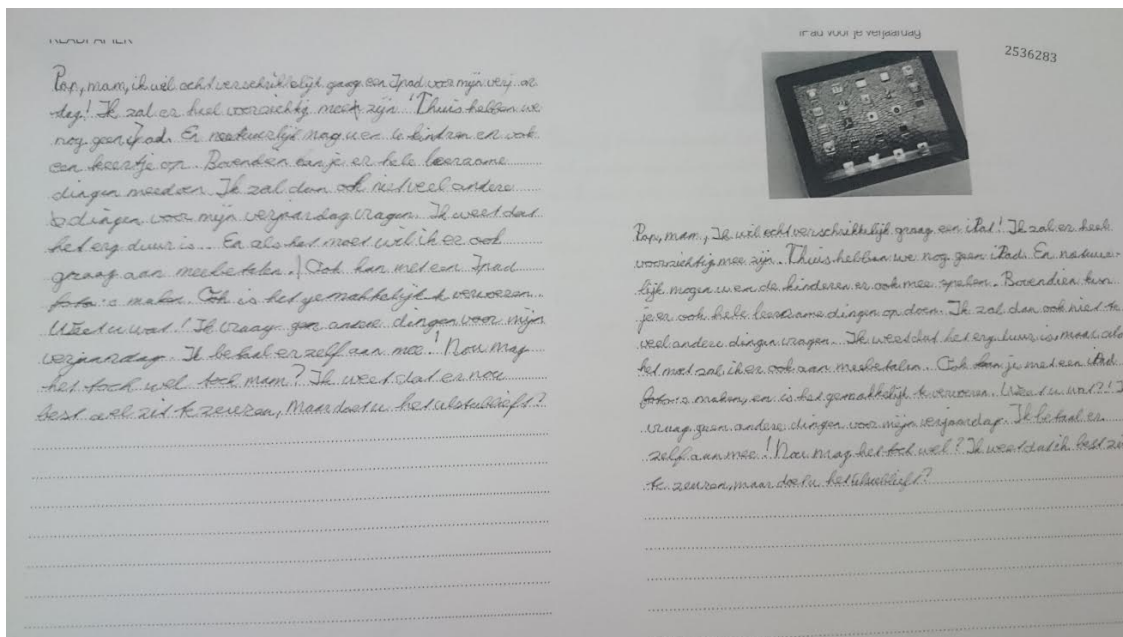 KLADPAPIER
Pap, mam, ik wil echt verschrikkelijk graag een Ipad voor mijn verjaar
dag! Ik zal er heel voorzichtig mee zijn! Thuis hebben we
nog geen iPad. En natuurlijk mag u en de kindren er ook
een keertje op. Bovendien kan je er hele leerzame
dingen meedoen. Ik zal dan ook niet veel andere
dingen voor mijn verjaardag vragen. Ik weet dat
het erg duur is.. En als het moet wil ik er ook
graag aan meebetalen. Ook kan met een Ipad
foto's maken. Ook is het gemakkelijk te vervoeren.
Weet u wat! Ik vraag geen andere dingen voor mijn
verjaardag. Ik betaal er zelf aan mee! Nou mag
het toch wel toch mam? Ik weet dat er nou
best wel zit te zeuren, maar doet u het alstublieft?
iPad voor je verjaardag
2536283
Pap, mam, Ik wil echt verschrikkelijk graag een iPat! Ik zal er heel
voorzichtig mee zijn. Thuis hebben we nog geen iPad. En natuur-
lijk mogen u en de kinderen er ook mee spelen. Bovendien kun
je er ook hele leerzame dingen op doen. Ik zal dan ook niet te
veel andere dingen vragen. Ik weet dat het erg duur is, maar als
het moet zal ik er ook aan meebetalen. Ook kan je met een iPad
foto's maken, en is het gemakkelijk te vervoeren. Weet u wat?! I
vraag geen andere dingen voor mijn verjaardag. Ik betaal er
zelf aan mee! Nou mag het toch wel? Ik weet dat ik best zi
te zeuren, maar doet u het alstublieft?